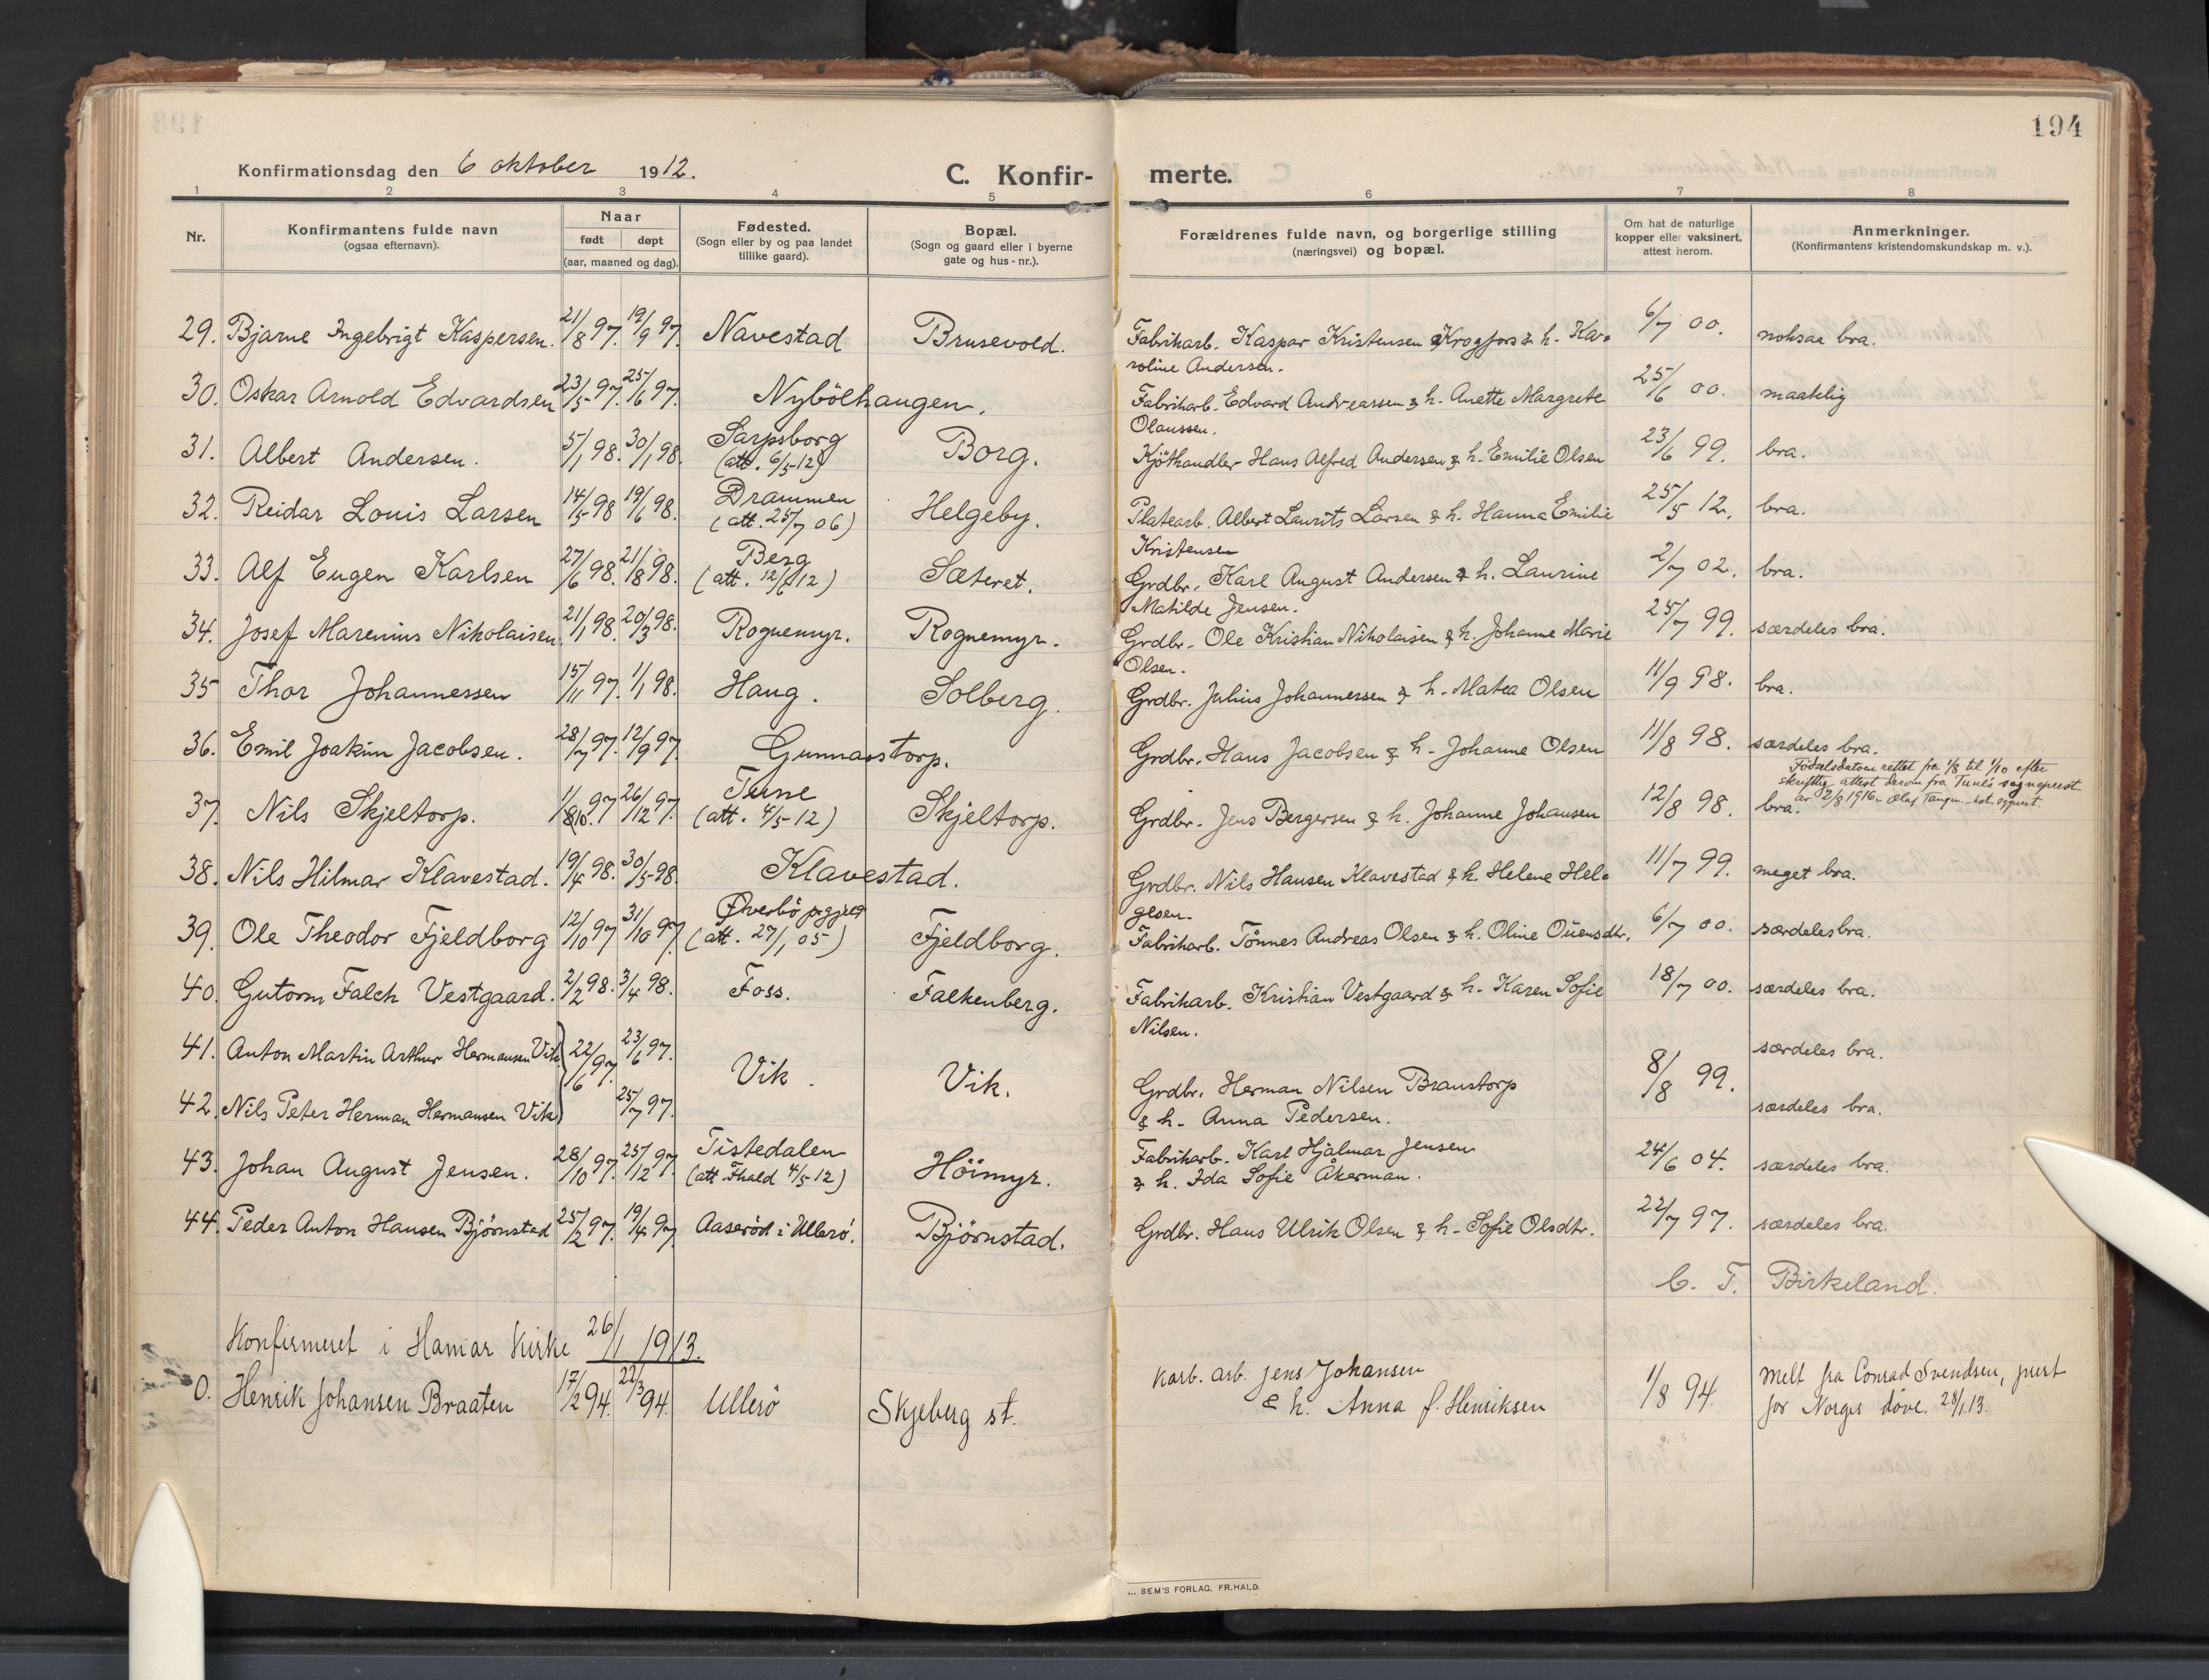 194
Konfirmationsdag den 6 oktober 1912. C. Konfir- merte.
1 2 3 4 5 6 7 8
Nr. Konfirmantens fulde navn (ogsaa efternavn). Naar født døpt (aar, maaned og dag). Fødested. (Sogn eller by og paa landet tillike gaard). Bopæl. (Sogn og gaard eller i byerne gate og hus-nr.). Forældrenes fulde navn, og borgerlige stilling (næringsvei) og bopæl. Om hat de naturlige kopper eller vaksinert, attest herom. Anmerkninger. (Konfirmantens kristendomskundskap m. v.).
29. Bjarne Ingebrigt Kaspersen. 21/8 97. 19/9 97. Navestad Brusevold. Fabrikarb. Kaspar Kristensen Krogfoss & h. Ka-
roline Andersen. 6/7 00. noksaa bra.
30. Oskar Arnold Edvardsen 23/5 97. 25/6 97. Nybölhaugen. Fabrikarb. Edvard Andreassen & h. Anette Margrete
Olaussen. 25/6 00. maatelig
31. Albert Andersen. 5/1 98. 30/1 98. Sarpsborg (att. 6/5-12) Borg. Kjöthandler Hans Alfred Andersen & h. Emilie Olsen 23/6 99. bra.
32. Reidar Louis Larsen 14/5 98 19/6 98. Drammen (att. 25/7 06) Helgeby. Platearb. Albert Laurits Larsen & h. Hanna Emilie
Kristensen 25/5 12. bra.
33. Alf Eugen Karlsen 27/6 98. 21/8 98. Berg (att. 12/6 12) Sæteret. Grdbr. Karl August Andersen & h. Laurine
Matilde Jensen. 2/7 02. bra.
34. Josef Marenius Nikolaisen. 21/1 98. 20/3 98. Rognemyr. Rognemyr. Grdbr. Ole Kristian Nikolaisen & h. Johanne Marie
Olsen. 25/7 99. særdeles bra.
35 Thor Johannessen 15/11 97. 1/1 98. Haug. Solberg. Grdbr. Julius Johannessen & h. Matea Olsen 11/9 98. bra.
36. Emil Joakim Jacobsen. 28/7 97. 12/9 97. Gunnarstorp. Grdbr. Hans Jacobsen & h. Johanne Olsen 11/8 98. særdeles bra.
Fødselsdatoen rettet fra 1/8 til 1/10 efter
skriftlig attest derom fra Tunes sogneprest
av 2/8 1916. Olaf Tangen
37. Nils Skjeltorp. 1/8 10. 97 26/12 97. Tune (att. 4/5-12) Skjeltorp. Grdbr. Jens Bergersen & h. Johanne Johansen 12/8 98. bra.
38. Nils Hilmar Klavestad. 19/4 98. 30/5 98. Klavestad. Grdbr. Nils Hansen Klavestad & h. Helene Hel-
gesen. 11/7 99. meget bra.
39. Ole Theodor Fjeldborg 12/10 97 31/10 97. Øverbö prgjeld (att. 27/1 05) Fjeldborg. Fabrikarb. Tönnes Andreas Olsen & h. Oline Ouensdtr. 6/7 00. særdeles bra.
40. Gutorm Falck Vestgaard. 2/2 98. 3/4 98. Foss. Falkenberg. Fabrikarb. Kristian Vestgaard & h. Karen Sofie
Nilsen. 18/7 00. særdeles bra.
41. Anton Martin Arthur Hermansen Vik 22/6 97. 23/6 97. særdeles bra.
Vik. Vik. Grdbr. Herman Nilsen Branstorp
& h. Anna Pedersen. 8/8 99.
42. Nils Peter Herman Hermansen Vik 25/7 97. særdeles bra.
43. Johan August Jensen. 28/10 97. 25/12 97. Tistedalen (att. Fhald 4/5-12) Höimyr. Fabrikarb. Karl Hjalmar Jensen
& h. Ida Sofie Åkerman. 24/6 04. særdeles bra.
44. Peder Anton Hansen Björnstad 25/2 97. 19/4 97. Aaseröd i Ullerö. Björnstad. Grdbr. Hans Ulrik Olsen & h. Sofie Olsdtr. 22/7 97. særdeles bra.
C. T. Birkeland.
Konfirmeret i Hamar Kirke 26/1 1913.
0. Henrik Johansen Braaten 17/2 94. 22/3 94. Ullerö Skjeberg st. Karb. arb. Jens Johansen
& h. Anna f. Henriksen 1/8 94. Melt fra Conrad Svendsen, prest
for Norges döve. 28/1 13.
SEM'S FORLAG, FR.HALD